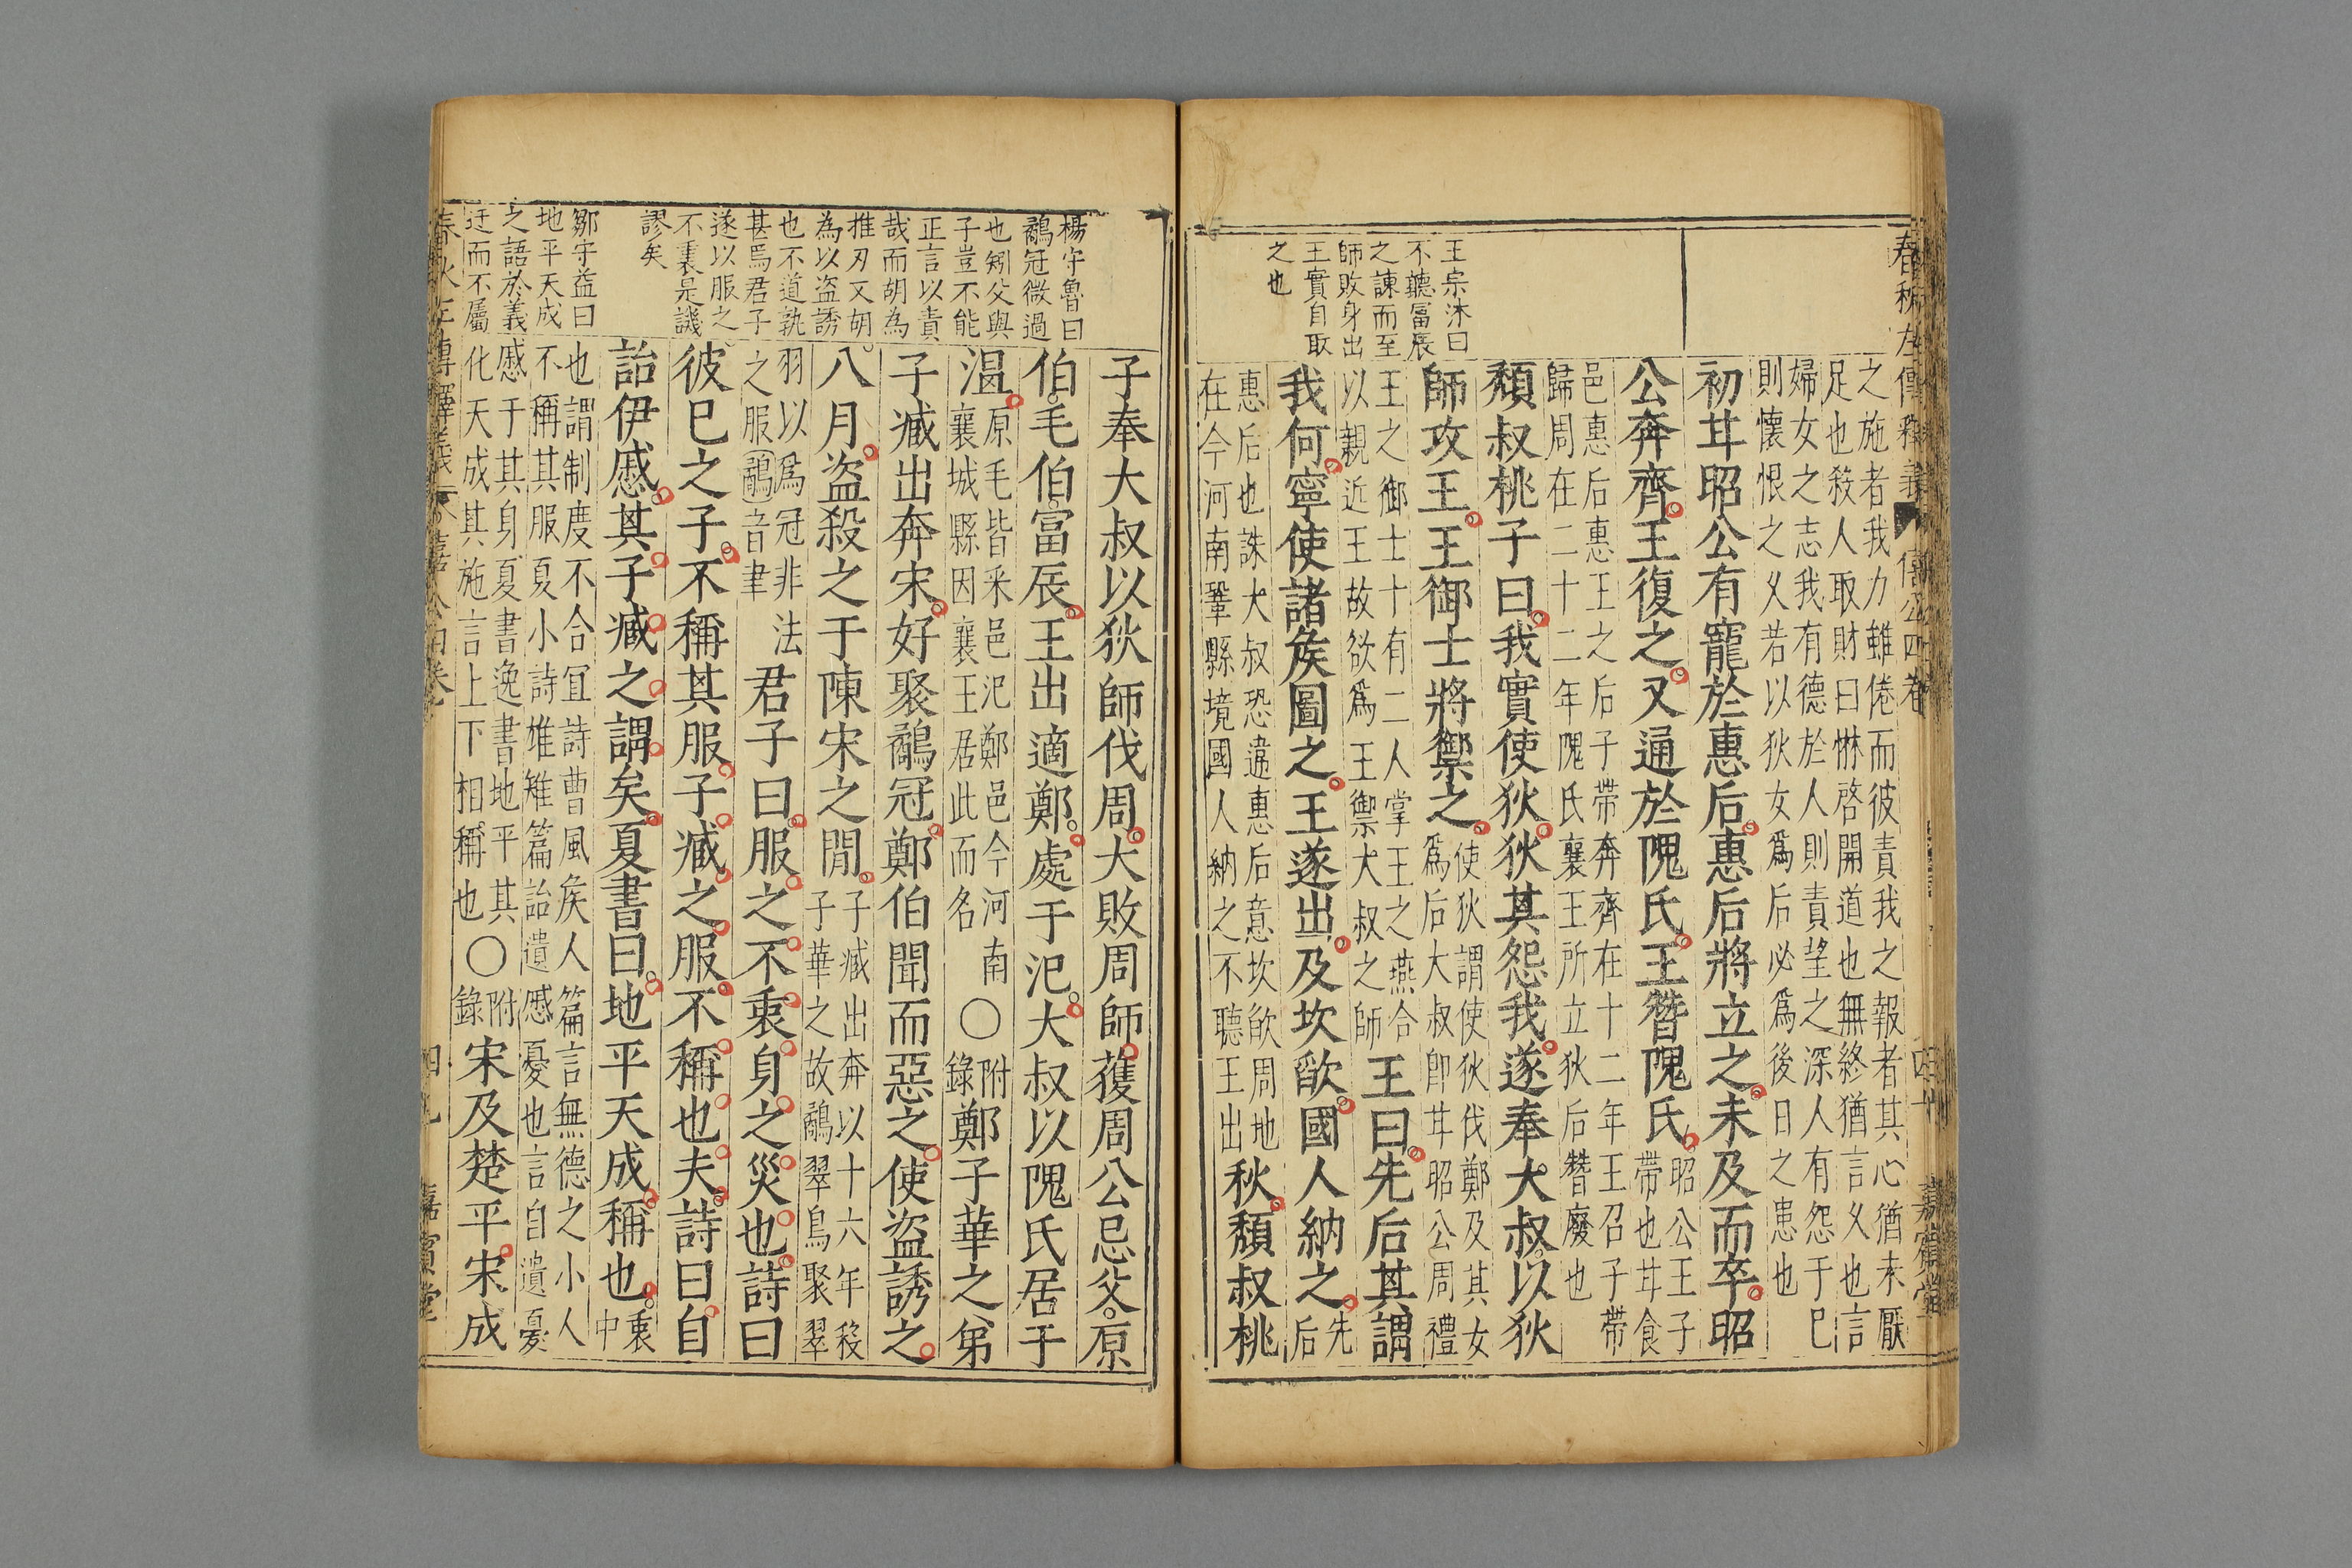 春秋左傳釋義 僖公四卷 四十 嘉賓堂
王宗沐曰
不聽富辰
之諫而至
師敗身出
王實自取
之也
之施者我力雖倦而彼責我之報者其心猶未厭
足也殺人取財曰惏啓開道也無終猶言义也言
婦女之志我有德於人則責望之深人有怨于巳
則懷恨之义若以狄女爲后必爲後日之患也
初甘昭公有寵於惠后惠后將立之未及而卒昭
公奔齊王復之又通於隗氏王替隗氏
昭公王子
帶也甘食
邑惠后惠王之后子帶奔齊在十二年王召子帶
歸周在二十二年隗氏襄王所立狄后替廢也
頹叔桃子曰我實使狄狄其怨我遂奉大叔以狄
師攻王王御士將禦之
使狄謂使狄伐鄭及其女
爲后大叔卽甘昭公周禮
王之御士十有二人掌王之燕合
以親近王故欲爲王禦大叔之師
王曰先后其謂
我何寧使諸矦圖之王遂出及坎欿國人納之
先
后
惠后也誅大叔恐違惠后意坎欿周地
在今河南鞏縣境國人納之不聽王出
秋頹叔桃
楊守魯曰
鷸冠微過
也矧父與
子豈不能
正言以責
哉而胡為
推刃又胡
為以盜誘
也不道孰
甚焉君子
遂以服之
不衷是譏
謬矣
鄒守益曰
地平天成
之語於義
迂而不屬
子奉大叔以狄師伐周大敗周師獲周公忌父原
伯毛伯富辰王出適鄭處于氾大叔以隗氏居于
溫
原毛皆采邑氾鄭邑今河南
襄城縣因襄王居此而名
○
附
錄
鄭子華之弟
子臧出奔宋好聚鷸冠鄭伯聞而惡之使盜誘之
八月盜殺之于陳宋之間
子臧出奔以十六年殺
子華之故鷸翠鳥聚翠
羽以爲冠非法
之服鷸音聿
君子曰服之不衷身之災也詩曰
彼巳之子不稱其服子臧之服不稱也夫詩曰自
詒伊慼其子臧之謂矣夏書曰地平天成稱也
衷
中
也謂制度不合冝詩曹風矦人篇言無德之小人
不稱其服夏小詩雄雉篇詒遺慼憂也言自遺憂
慼于其身夏書逸書地平其
化天成其施言上下相稱也
○
附
錄
宋及楚平宋成